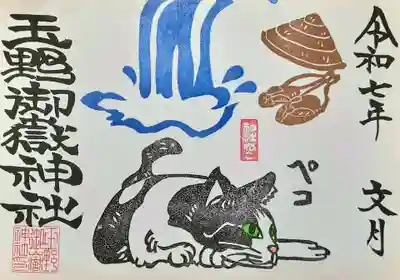 令和七年 文月
ペコ
玉野御嶽神社